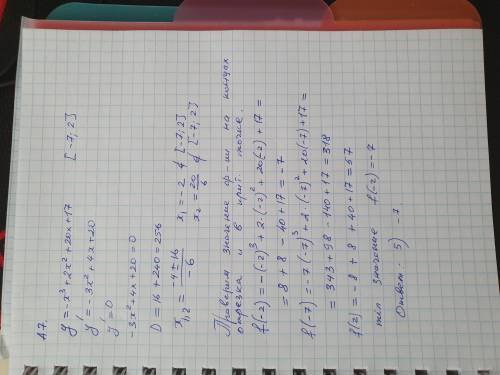 А.7.
y = -x³ + 2x² + 20x + 17 [-7; 2]
y' = -3x² + 4x + 20
y' = 0
-3x² + 4x + 20 = 0
D = 16 + 240 = 256
x₁,₂ = (-4 ± 16)/(-6) x₁ = -2 ∈ [-7; 2]
x₂ = 20/6 ∉ [-7; 2]
Проверим значение ф-ии на концах
отрезка и в крит. точке.
f(-2) = -(-2)³ + 2·(-2)² + 20(-2) + 17 =
= 8 + 8 - 40 + 17 = -7
f(-7) = -7(-7)³ + 2·(-7)² + 20(-7) + 17 =
= 343 + 98 - 140 + 17 = 318
f(2) = -8 + 8 + 40 + 17 = 57
min значение f(-2) = -7
Ответ: 5) -7